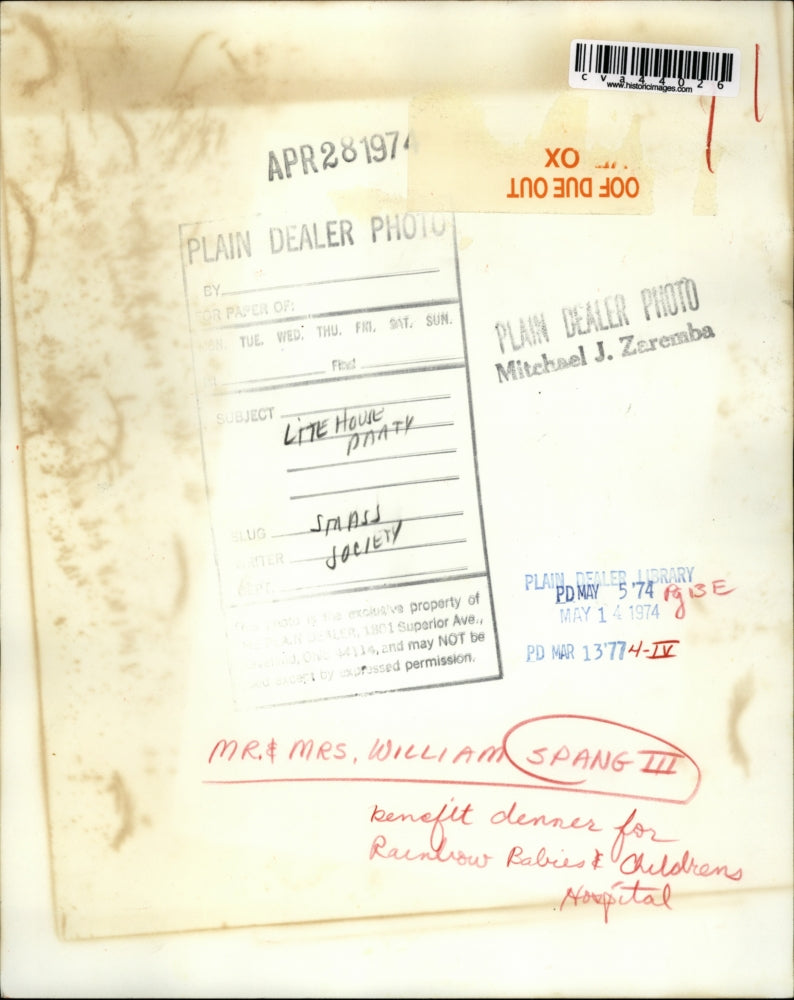 cva44026
www.historicimages.com
APR 28 1974
OOF DUE OUT
OX
PLAIN DEALER PHOTO
BY
OR PAPER OF:
MON. TUE. WED. THU. FRI. SAT. SUN.
Final
SUBJECT
LITE HOUSE
PARTY
SLUG SMASS
WRITER SOCIETY
DEPT.
This photo is the exclusive property of
THE PLAIN DEALER, 1801 Superior Ave.,
Cleveland, Ohio 44114, and may NOT be
used except by expressed permission.
PLAIN DEALER PHOTO
Mitchael J. Zaremba
PLAIN DEALER LIBRARY
PD MAY 5 '74 Pg 13 E
MAY 14 1974
PD MAR 13 '77 4-IV
MR. & MRS. WILLIAM SPANG III
benefit dinner for
Rainbow Babies & Childrens
Hospital